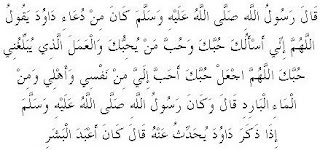 قَالَ رَسُولُ اللَّهِ صَلَّى اللَّهُ عَلَيْهِ وَسَلَّمَ كَانَ مِنْ دُعَاءِ دَاوُدَ يَقُولُ
اللَّهُمَّ إِنِّي أَسْأَلُكَ حُبَّكَ وَحُبَّ مَنْ يُحِبُّكَ وَالْعَمَلَ الَّذِي يُبَلِّغُنِي
حُبَّكَ اللَّهُمَّ اجْعَلْ حُبَّكَ أَحَبَّ إِلَيَّ مِنْ نَفْسِي وَأَهْلِي وَمِنْ
الْمَاءِ الْبَارِدِ قَالَ وَكَانَ رَسُولُ اللَّهِ صَلَّى اللَّهُ عَلَيْهِ وَسَلَّمَ
إِذَا ذَكَرَ دَاوُدَ يُحَدِّثُ عَنْهُ قَالَ كَانَ أَعْبَدَ الْبَشَرِ